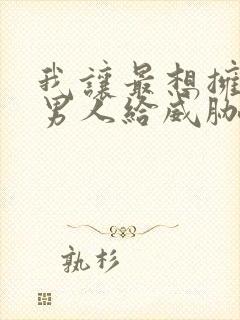 我讓最想擁
男人給威脅
孰杉